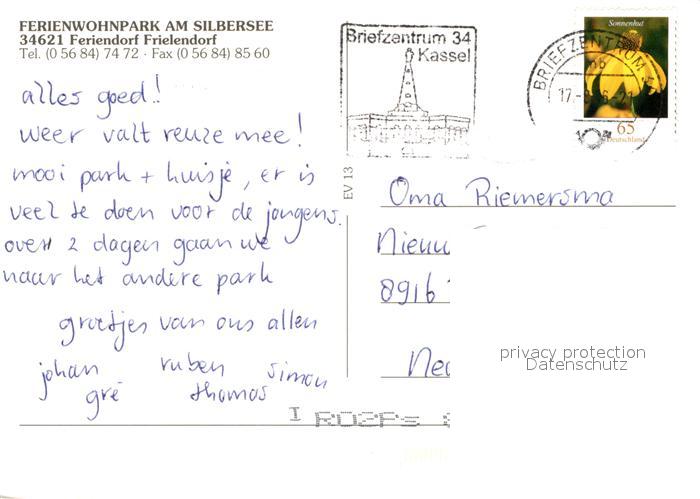 FERIENWOHNPARK AM SILBERSEE
34621 Feriendorf Frielendorf
Tel. (0 56 84) 74 72 · Fax (0 56 84) 85 60
Briefzentrum 34
Kassel
BRIEFZENTRUM
17.
Sonnenhut
65
Deutschland
alles goed!!
weer valt reuze mee!
mooi park + huisje, er is
veel te doen voor de jongens.
over 2 dagen gaan we
naar het andere park
groetjes van ons allen
johan ruben simon
gré thomas
EV 13
Oma Riemersma
Nieuw
8916
Ned
privacy protection
Datenschutz